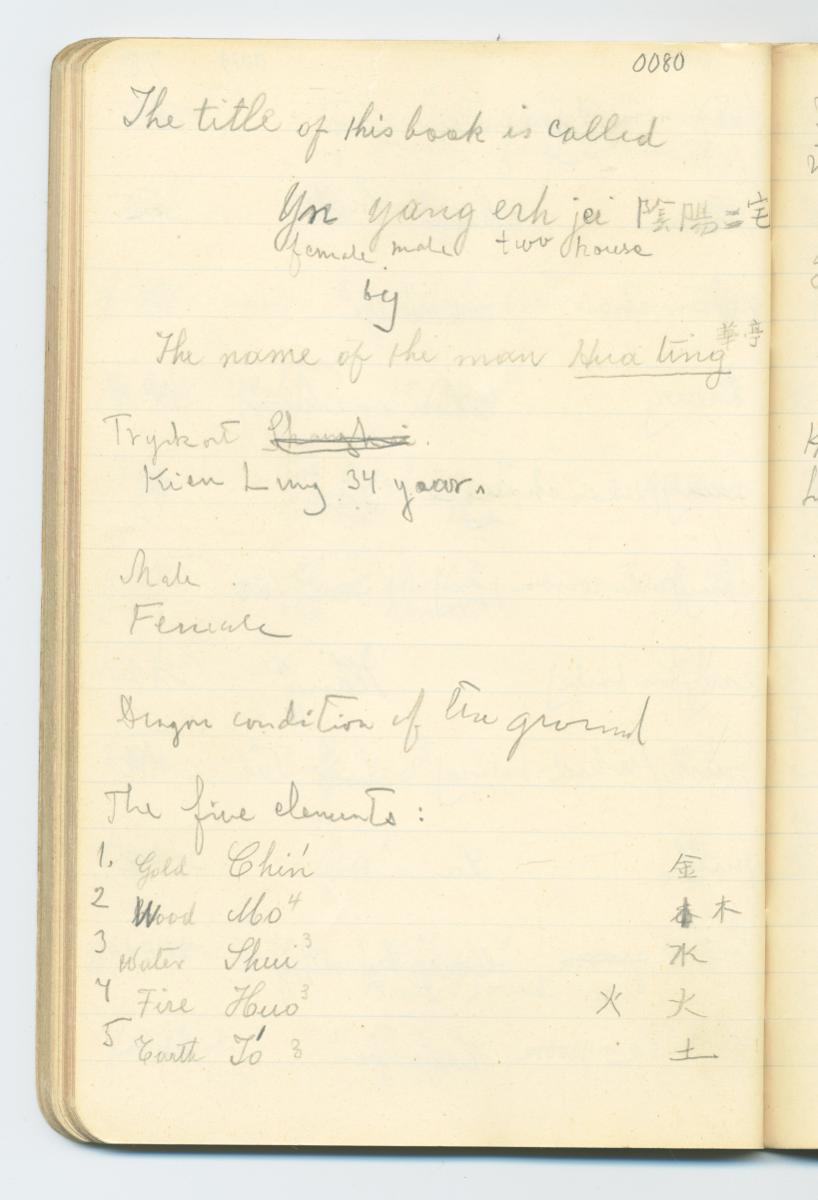 0080
The title of this book is called
Yn yang erh jei 陰陽二宅
female male two house
by
The name of the man Hua ting 華亭
Tryckort Shanghai.
Kien Lung 34 year.
Male
Female
Dragon condition of the ground
The five elements:
1. Gold Chin 金
2 Wood Mo4 木
3 Water Shui3 水
4 Fire Huo3 火 火
5 Earth Tó 3 土